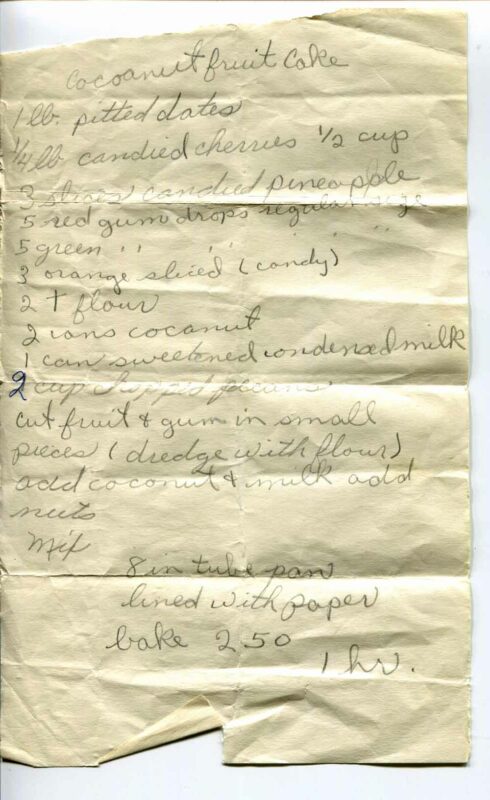 cocoanut fruit cake
1 lb. pitted dates
1/4 lb candied cherries 1/2 cup
3 slices candied pineapple
5 red gum drops regular size
5 green " " " " "
3 orange sliced (candy)
2 T flour
2 cans cocanut
1 can sweetened condensed milk
2 cup chopped pecans
cut fruit & gum in small
pieces (dredge with flour)
add coconut & milk add
nuts
Mix
8 in tube pan
lined with paper
bake 250
1 hr.